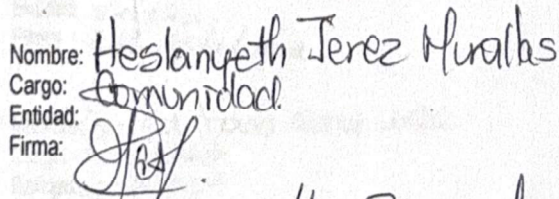 Nombre: Heslanyeth Jerez Murallas
Cargo: Comunidad
Entidad:
Firma: